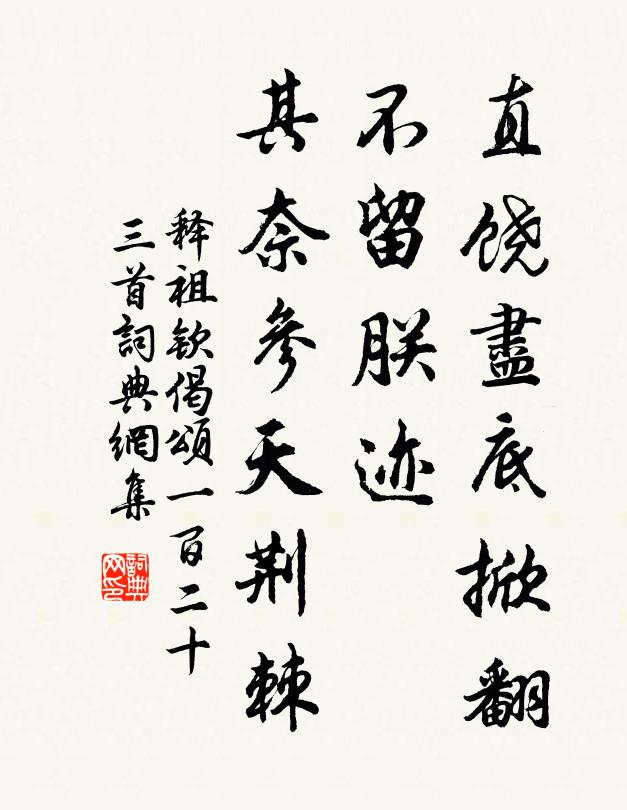 直饶盡底掀翻
不留朕迹
其奈參天荆棘
释祖钦偈頌一百二十
三首詞典網集
詞典
网印